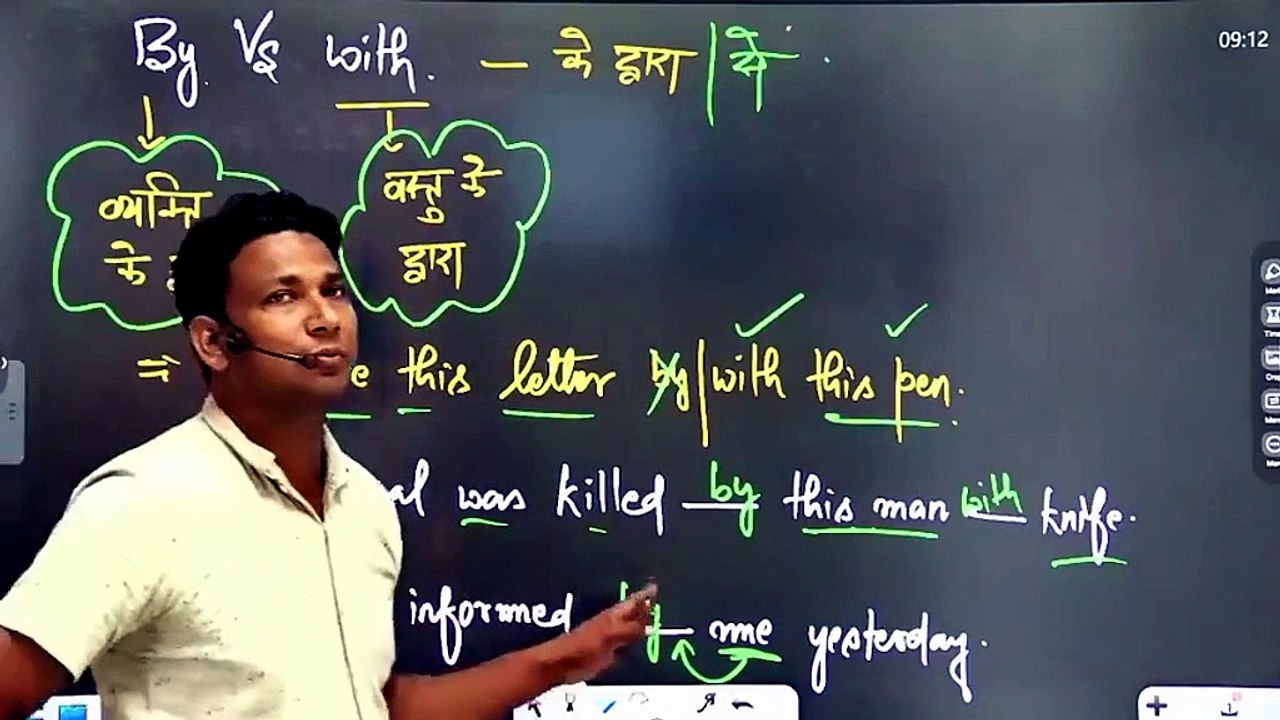 By Vs with. – के द्वारा | से
09:12
व्यक्ति के
वस्तु के
द्वारा
⇒ this letter by | with this pen.
was killed by this man with knife.
informed by me yesterday.